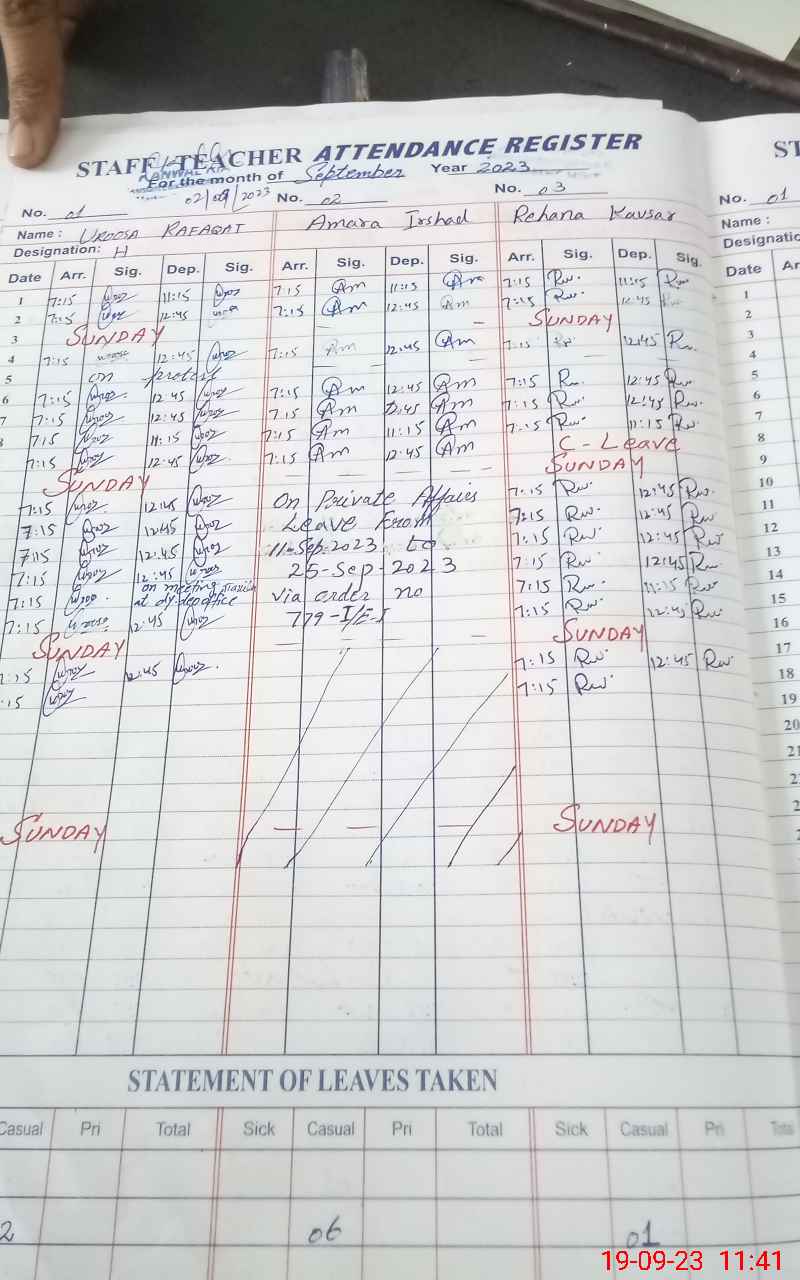 STAFF/TEACHER ATTENDANCE REGISTER
For the month of September Year 2023
02/09/2023
No. 01 No. 02 No. 03
Name : UROOSA RAFAQAT Amara Irshad Rehana Kausar
Designation: H
Date Arr. Sig. Dep. Sig. Arr. Sig. Dep. Sig. Arr. Sig. Dep. Sig.
1 7:15 11:15 7:15 Am 11:15 Am 7:15 Rw. 11:15 Rw.
2 7:15 12:45 7:15 Am 12:45 Am 7:15 Rw. 12:45 Rw.
3 SUNDAY — — SUNDAY
4 7:15 12:45 7:15 Am 12:45 Am 7:15 Rw 12:45 Rw.
5 on protest
6 7:15 12:45 7:15 Am 12:45 Am 7:15 Rw. 12:45 Rw.
7 7:15 12:45 7:15 Am 12:45 Am 7:15 Rw. 12:45 Rw.
8 7:15 11:15 7:15 Am 11:15 Am 7:15 Rw. 11:15 Rw.
7:15 12:45 7:15 Am 12:45 Am C-Leave
SUNDAY — — — SUNDAY
7:15 12:45 On Private Affairs 7:15 Rw. 12:45 Rw.
7:15 12:45 Leave From 7:15 Rw. 12:45 Rw.
7:15 12:45 11-Sep-2023 to 7:15 Rw. 12:45 Rw.
7:15 12:45 25-Sep-2023 7:15 Rw. 12:45 Rw.
7:15 on meeting at dy.deo office via order no 7:15 Rw. 11:15 Rw.
7:15 12:45 779-I/E-I 7:15 Rw. 12:45 Rw.
SUNDAY — — — SUNDAY
7:15 12:45 7:15 Rw. 12:45 Rw.
:15 7:15 Rw.
SUNDAY — — — SUNDAY
STATEMENT OF LEAVES TAKEN
Casual Pri Total Sick Casual Pri Total Sick Casual Pri Total
2 06 01
ST
No. 01
Name :
Designatio
Date Ar
1
2
3
4
5
6
7
8
9
10
11
12
13
14
15
16
17
18
19
20
21
2
2
19-09-23 11:41